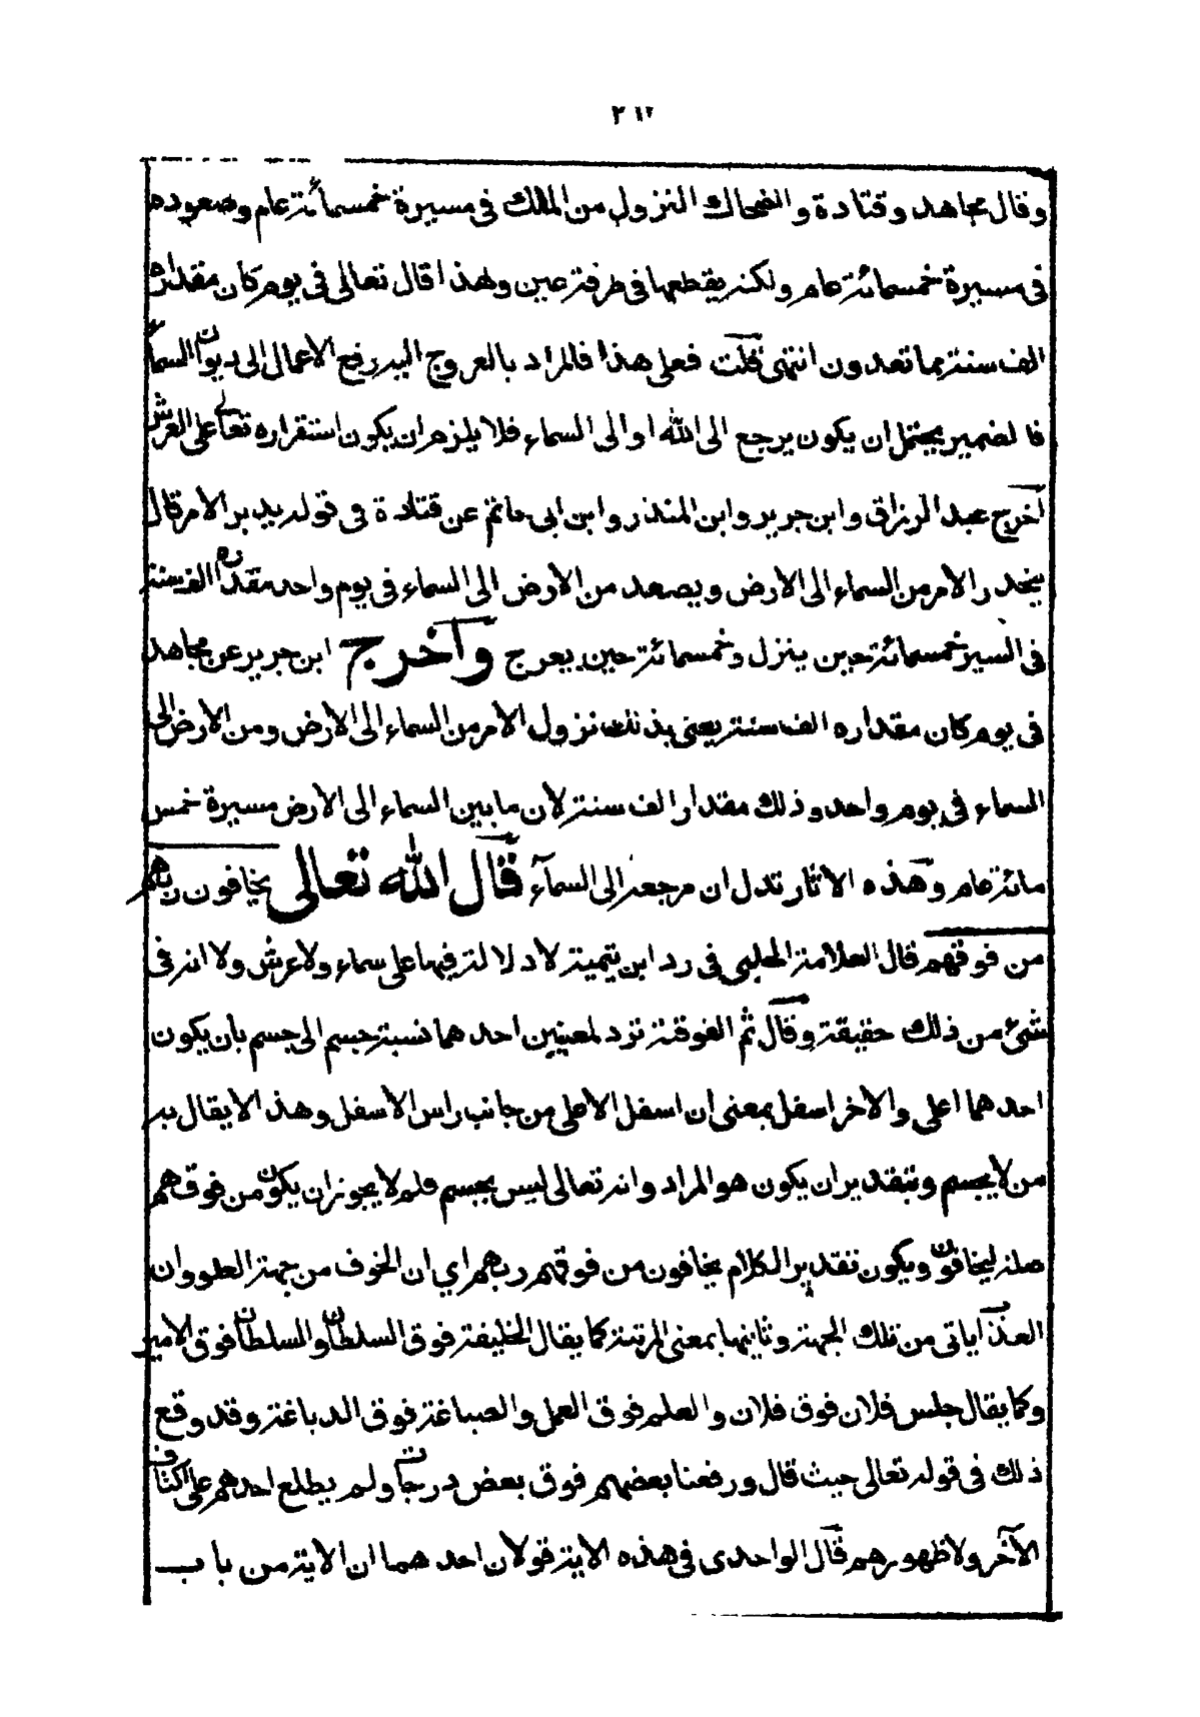 ٢١٢
وقال مجاهد وقتادة والضحاك النزول من الملك فى مسيرة خمسمائة عام وصعوده
فى مسيرة خمسمائة عام ولكنه يقطعها فى طرفة عين ولهذا قال تعالى فى يوم كان مقداره
الف سنة مما تعدون انتهى قلت فعلى هذا فالمراد بالعروج اليه رفع الاعمال الى ديوان السماء
فالضمير يحتمل ان يكون يرجع الى الله او الى السماء فلا يلزم ان يكون استقراره تعالى على العرش
اخرج عبد الرزاق وابن جرير وابن المنذر وابن ابى حاتم عن قتادة فى قوله يدبر الامر قال
ينحدر الامر من السماء الى الارض ويصعد من الارض الى السماء فى يوم واحد مقداره الف سنة
فى السير خمسمائة حين ينزل وخمسمائة حين يعرج واخرج ابن جرير عن مجاهد
فى يوم كان مقداره الف سنة يعنى بذلك نزول الامر من السماء الى الارض ومن الارض الى
السماء فى يوم واحد وذلك مقدار الف سنة لان ما بين السماء الى الارض مسيرة خمس
مائة عام وهذه الاثار تدل ان مرجعه الى السمآء قال الله تعالى يخافون ربهم
من فوقهم قال العلامة الحلبى فى رد ابن تيمية لا دلالة فيها على سماء ولا عرش ولا انه فى
شئ من ذلك حقيقة وقال ثم الفوقية ترد لمعنيين احدهما نسبة جسم الى جسم بأن يكون
احدهما اعلى والاخر اسفل بمعنى ان اسفل الاعلى من جانب راس الاسفل وهذا لا يقال به
من لا يجسم وبتقدير ان يكون هو المراد وانه تعالى ليس بجسم فلم لا يجوز ان يكون من فوقهم
صلة ليخافون ويكون تقدير الكلام يخافون من فوقهم ربهم اي ان الخوف من جهة العلو وان
العذاب ياتى من تلك الجهة وثانيها بمعنى المرتبة كما يقال الخليفة فوق السلطان والسلطان فوق الامير
وكما يقال جلس فلان فوق فلان والعلم فوق العمل والصباغة فوق الدباغة وقد وقع
ذلك فى قوله تعالى حيث قال ورفعنا بعضهم فوق بعض درجات ولم يطلع احدهم على اكتاف
الآخر ولا ظهورهم قال الواحدى فى هذه الاية قولان احدهما ان الاية من باب